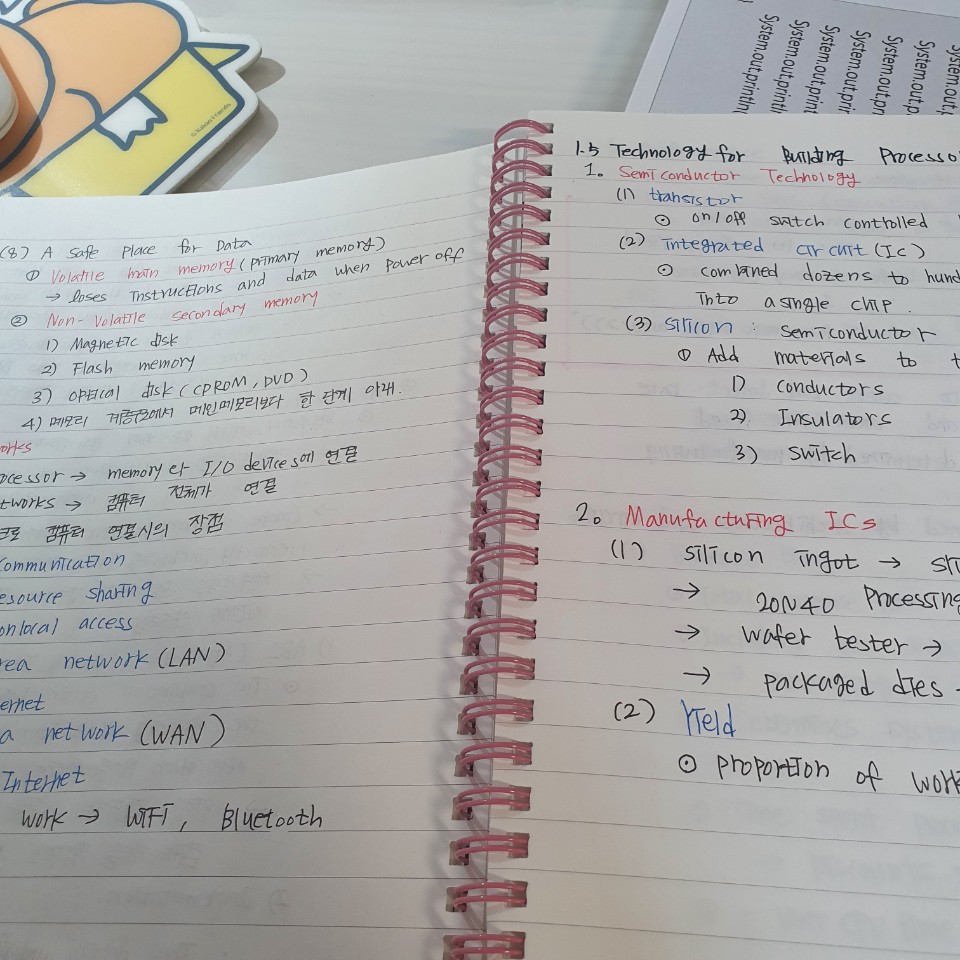 ©Kakao Friends
System.out.println
System.out.println
System.out.println
System.out.prin
System.out.pr
System.out.p
System.out
(8) A safe place for Data
① Volatile main memory (primary memory)
→ loses instructions and data when power off
② Non-Volatile secondary memory
1) Magnetic disk
2) Flash memory
3) optical disk (CDROM, DVD)
4) 메모리 계층구조에서 메인메모리보다 한 단계 아래.
orks
ocessor → memory와 I/O devices에 연결
tworks → 컴퓨터 전체가 연결
크로 컴퓨터 연결시의 장점
ommunication
esource sharing
onlocal access
rea network (LAN)
ernet
a network (WAN)
Internet
work → WIFI, Bluetooth
1.5 Technology for Building Processo
1. Semiconductor Technology
(1) transistor
⊙ on/off switch controlled
(2) integrated circuit (IC)
⊙ combined dozens to hund
into a single chip.
(3) silicon : semiconductor
① Add materials to t
1) conductors
2) Insulators
3) switch
2. Manufacturing ICs
(1) silicon ingot → sli
→ 20N40 Processing
→ wafer tester →
→ packaged dies →
(2) Yield
⊙ proportion of work